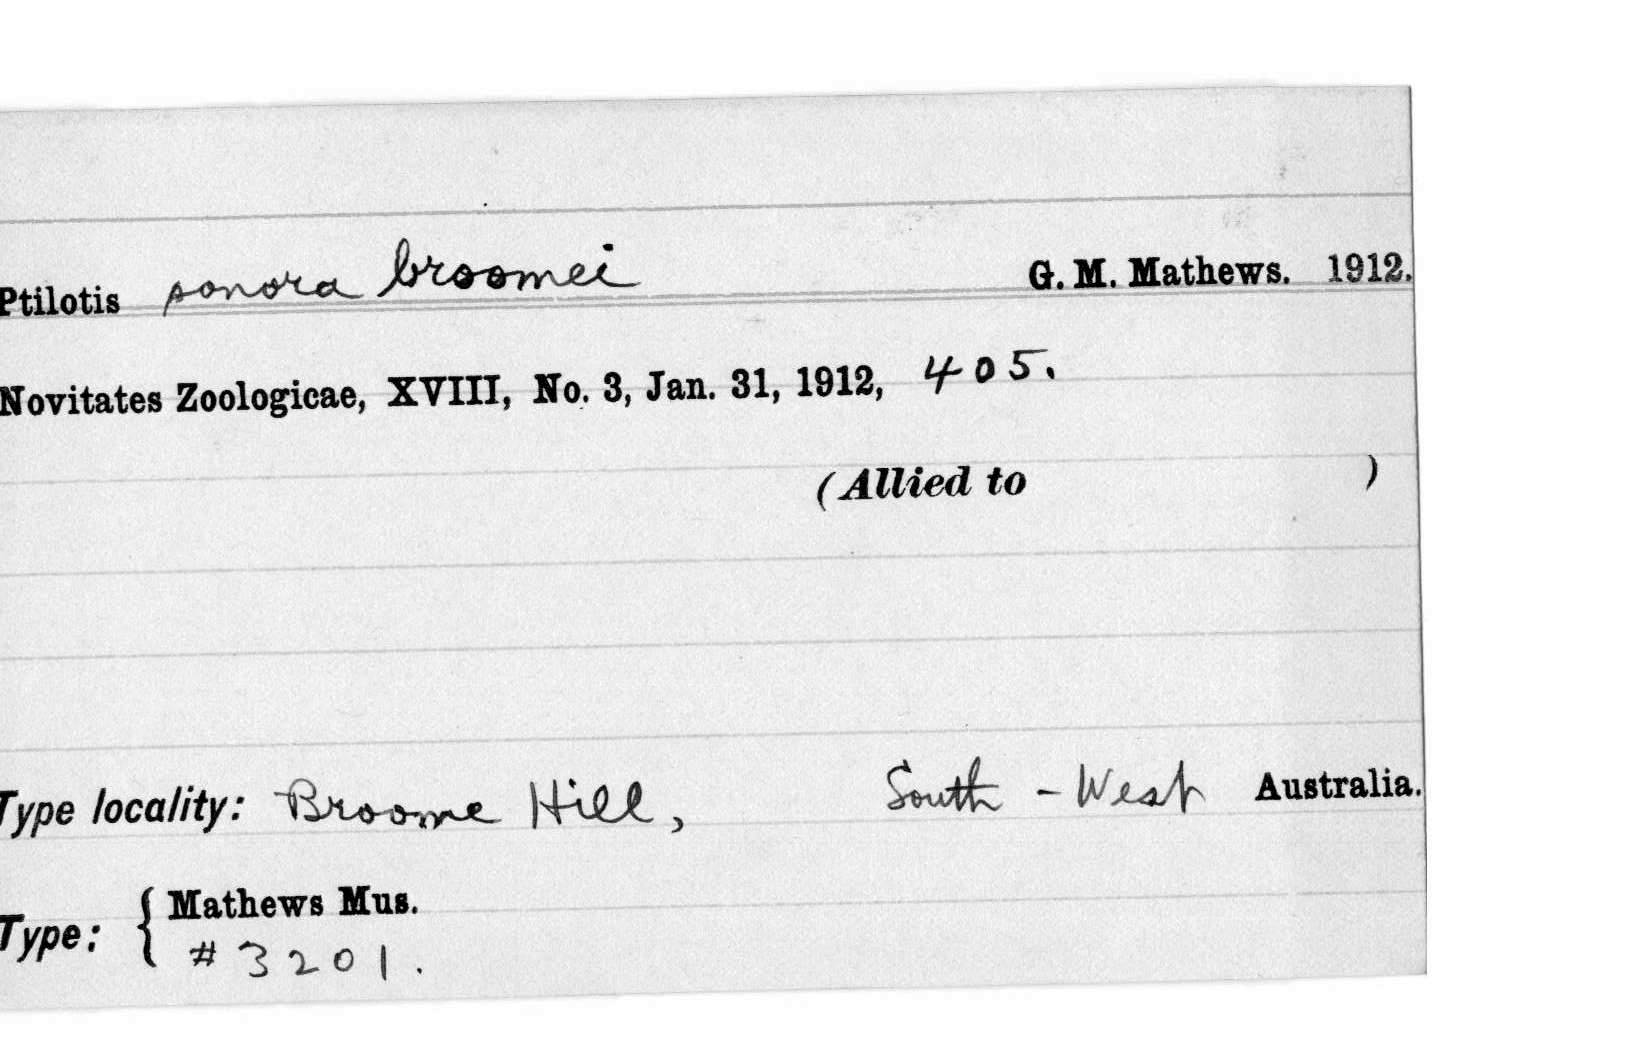 Ptilotis sonora broomei G. M. Mathews. 1912.
Novitates Zoologicae, XVIII, No. 3, Jan. 31, 1912, 405.
(Allied to )
Type locality: Broome Hill, South - West Australia.
Type: { Mathews Mus.
# 3201.